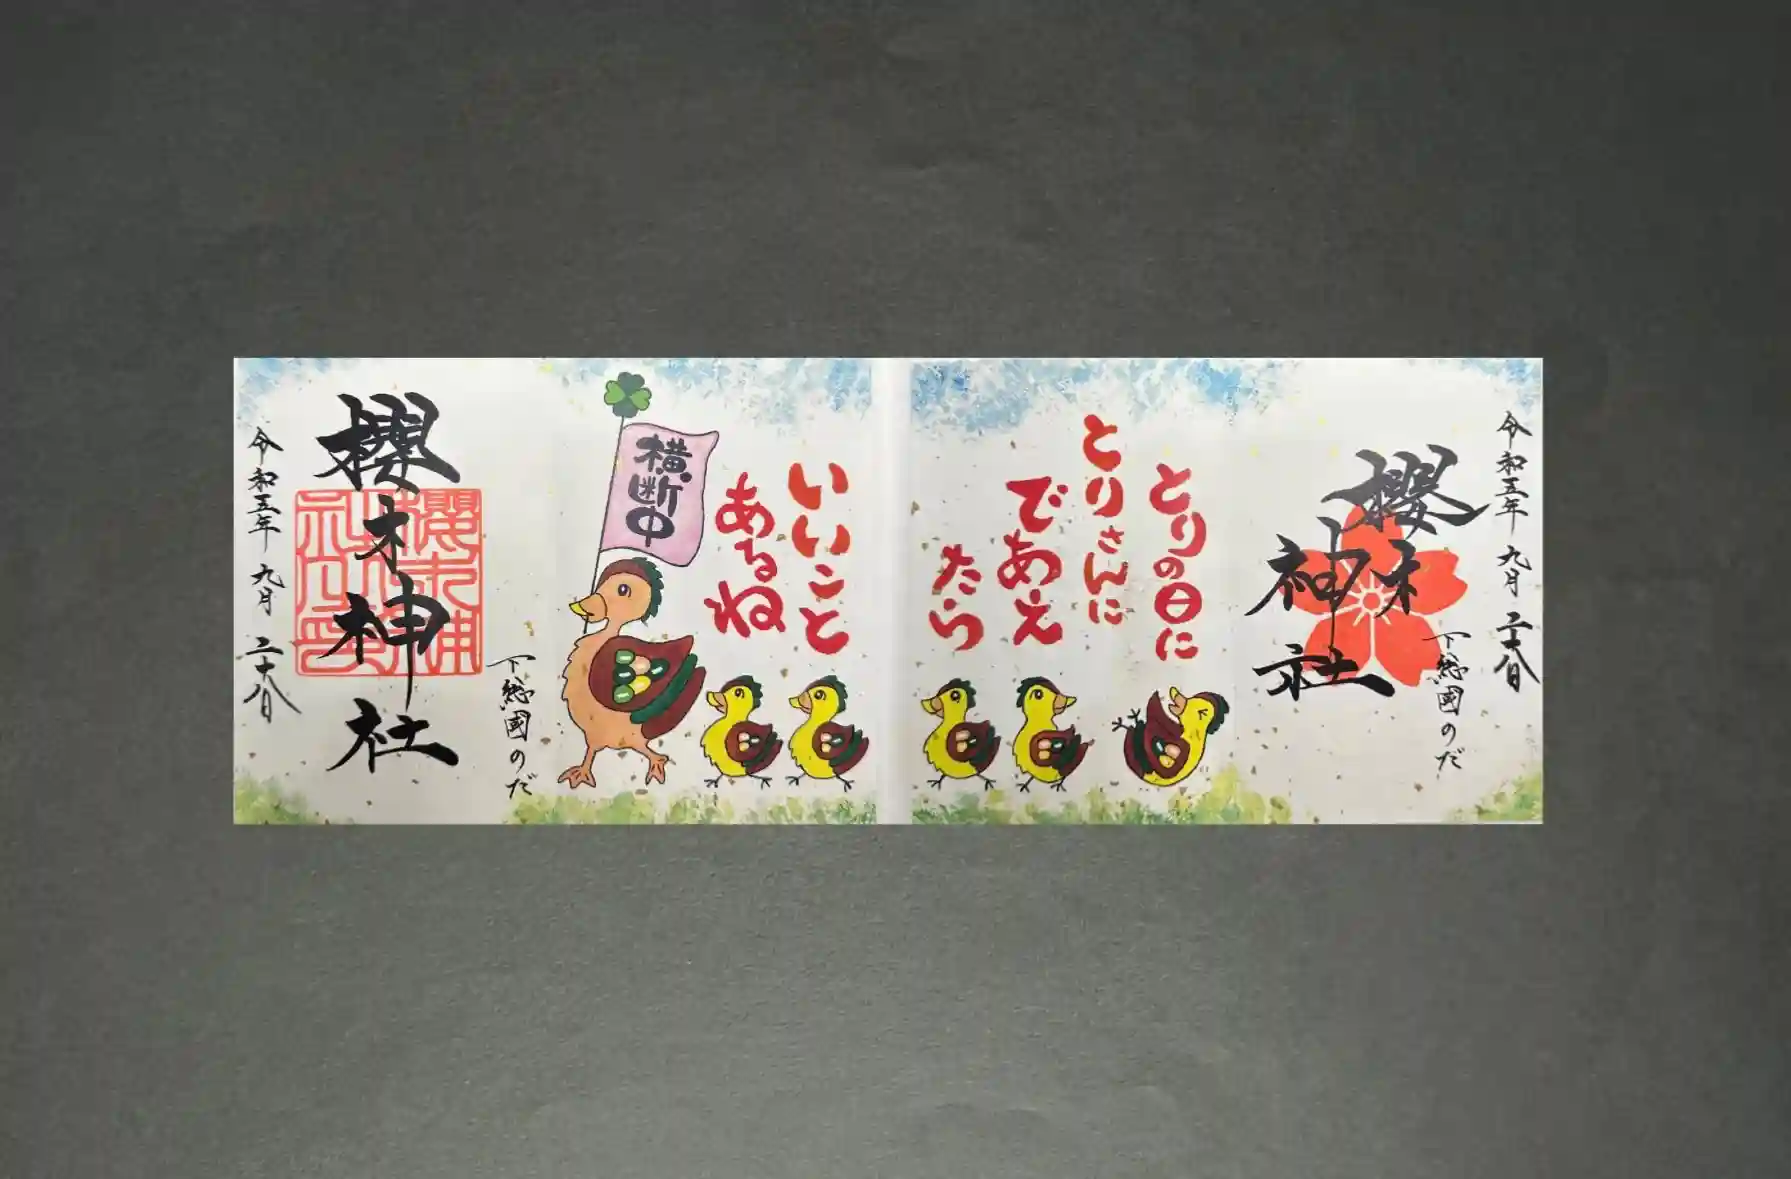 令和五年 九月 二十八日
下総國のだ
櫻木神社
とりの日に
とりさんに
であえ
たら
いいこと
あるね
横断中
下総國のだ
櫻木神社
櫻木神社印
令和五年 九月 二十八日